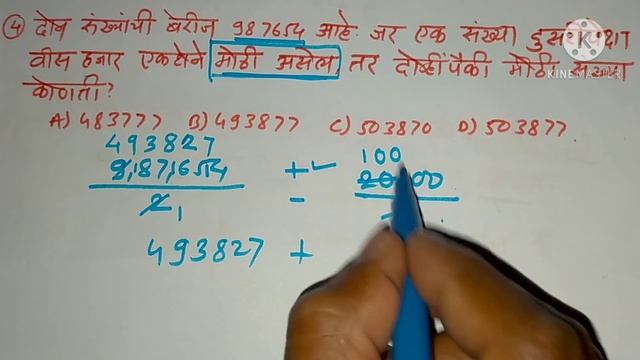 ④ दोन संख्यांची बेरीज 987654 आहे. जर एक संख्या
वीस हजार एकशेने मोठी असेल, तर दोन्हींपैकी मोठी
कोणती?
A) 483777 B) 493877 C) 503870 D) 503877
493827 100
987654 + 20
2 1 -
493827 +
KINEMASTER